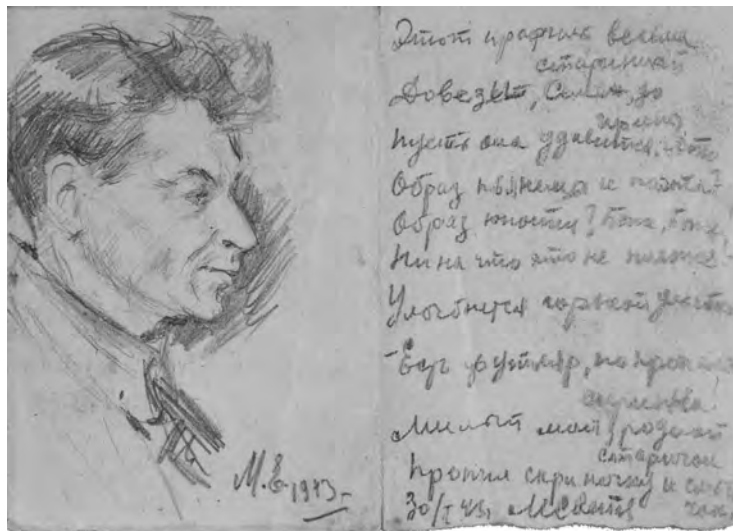 1943
Этот профиль весьма
старинный
до
Пусть она удивится: это
Образ пьяницы и поэта?
Образ юности? Боже, Боже,
Ни на что это не похоже!
Улыбнется горькой улыбкой
- Есть футляр, но пропала
скрипка!
Милый мой, родной
старичок
Пропил скрипочку и смычок
30/I 43, М Светлов